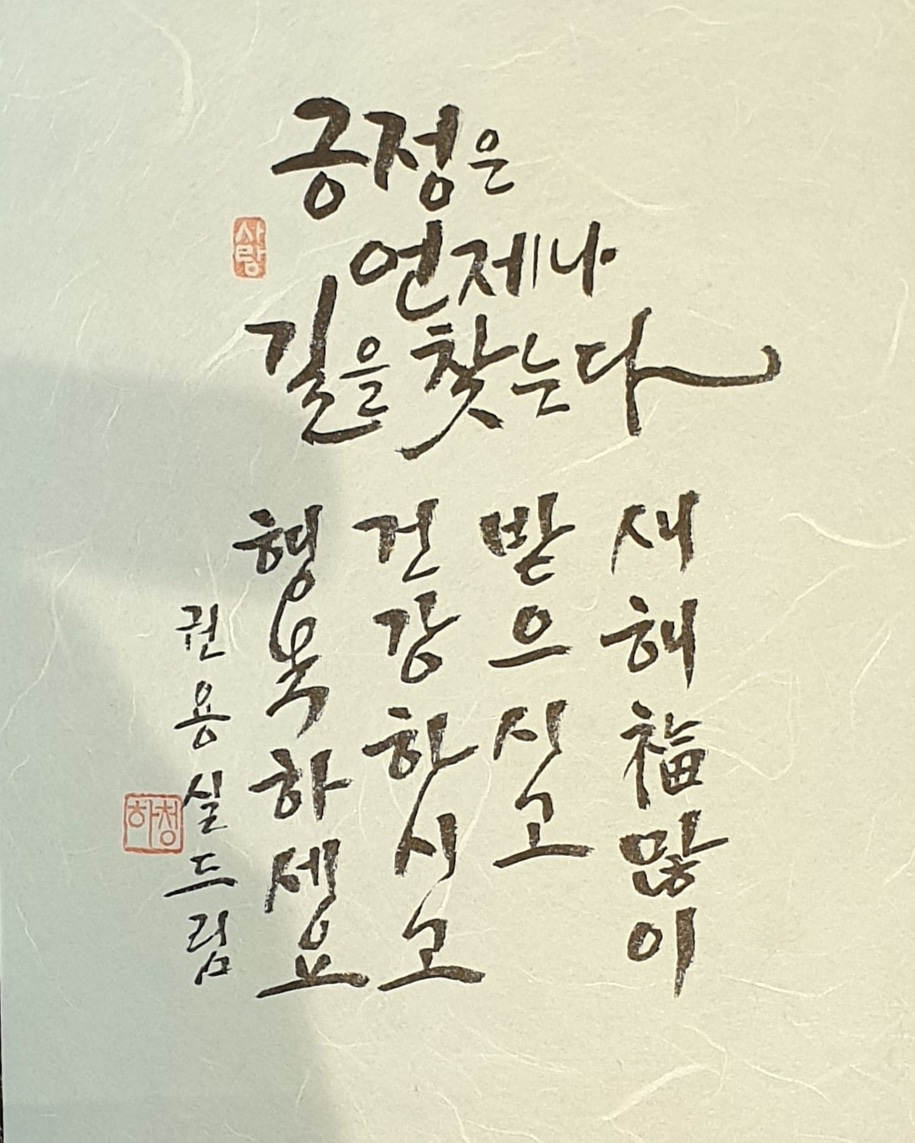 긍정은
언제나
길을 찾는다
사랑
새해福많이
받으시고
건강하시고
형복하세요
권용실드림
하청